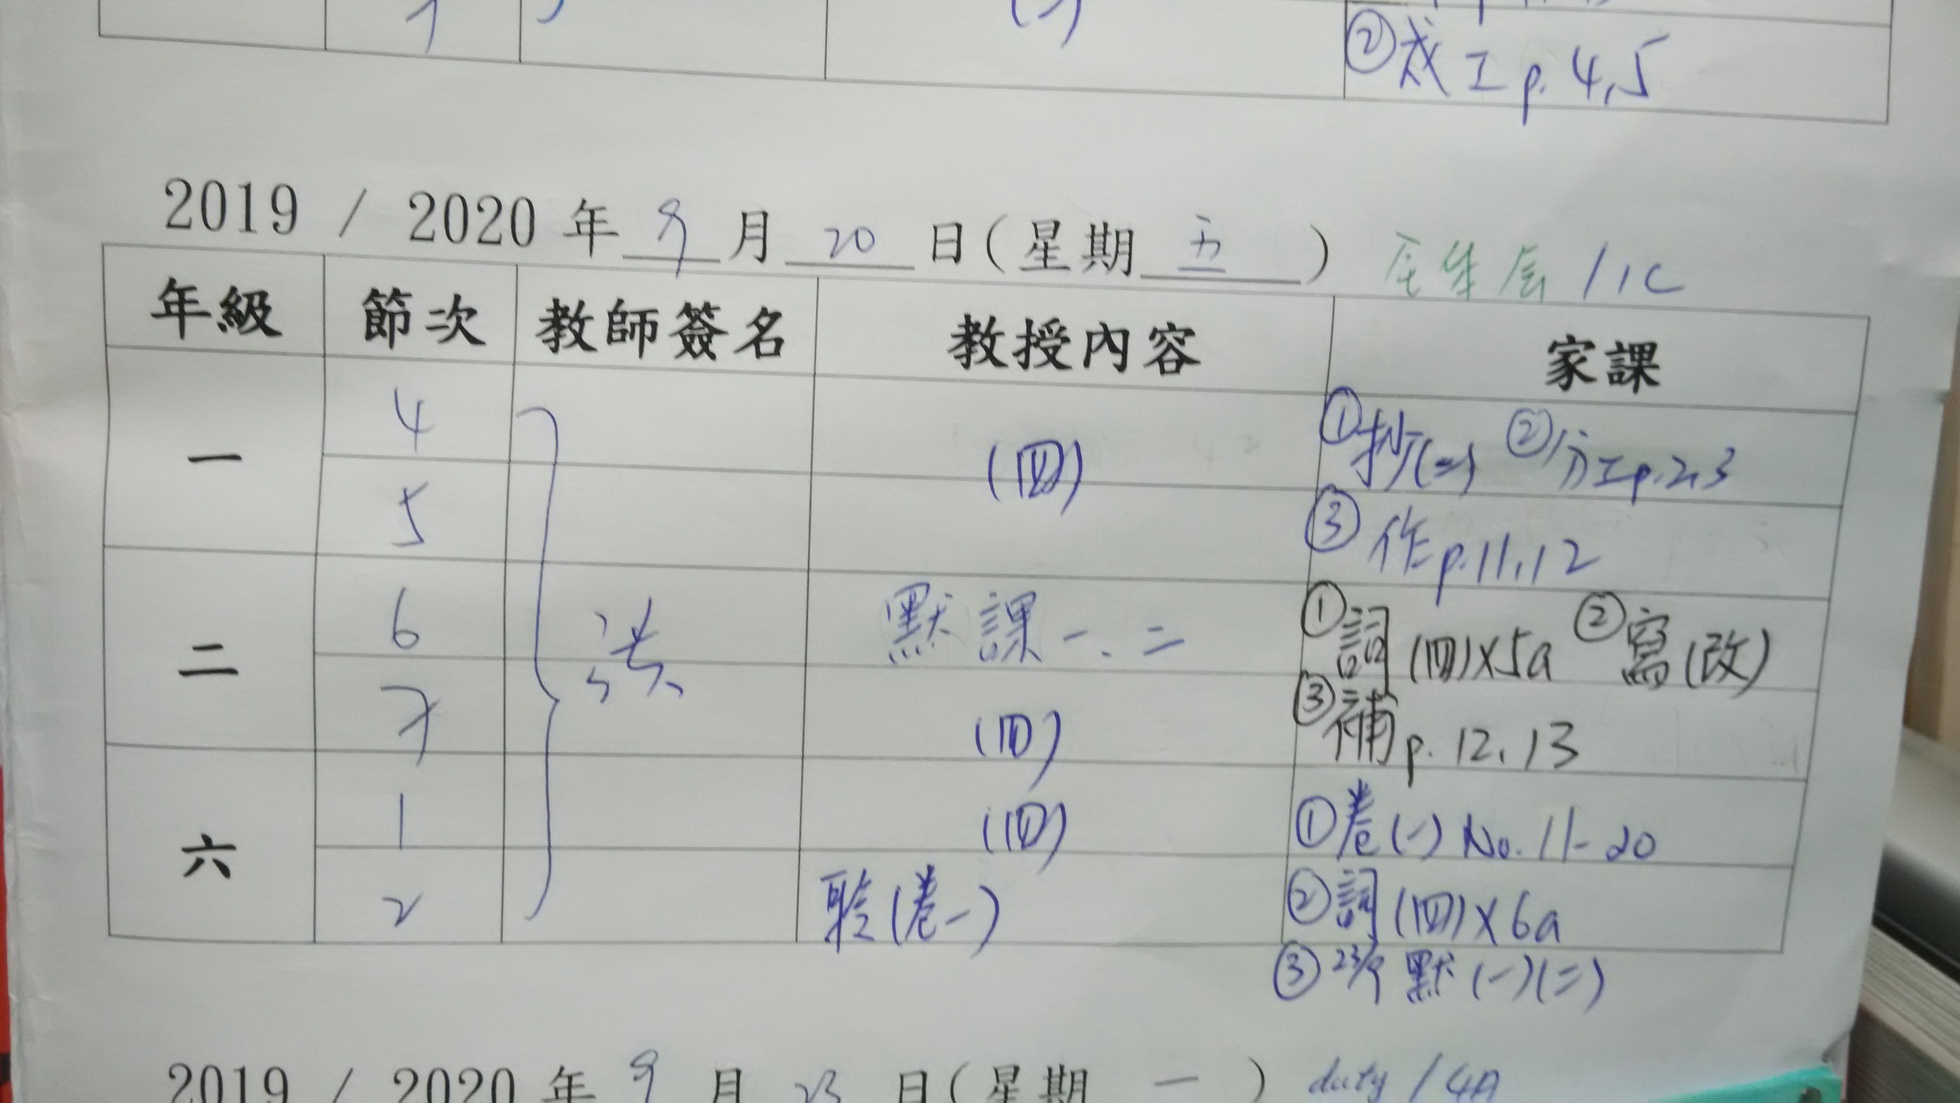 ②成工p. 4,5
2019 / 2020 年 9 月 20 日(星期 五 ) /1C
年級 節次 教師簽名 教授內容 家課
一 4 (四) ①抄(二) ②分工p.2,3
5 ③作p.11,12
二 6 默課一、二 ①詞(四)X5a ②寫(改)
7 (四) ③補p. 12,13
六 1 (四) ①卷(一) No. 11-20
2 聆(卷一) ②詞(四)X6a
③23/9 默(一)(二)
2019 / 2020 年 9 月 23 日(星期 一 ) duty / 4A